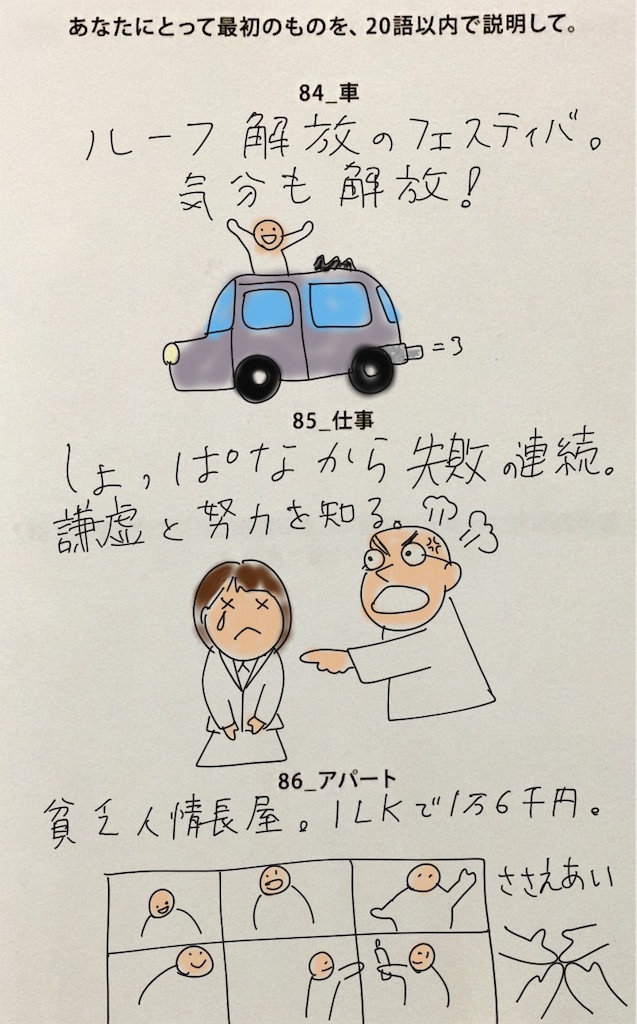 あなたにとって最初のものを、20語以内で説明して。
84_車
ルーフ解放のフェスティバ。
気分も解放！
=3
85_仕事
しょっぱなから失敗の連続。
謙虚と努力を知る。
86_アパート
貧乏人情長屋。1LKで1万6千円。
ささえあい